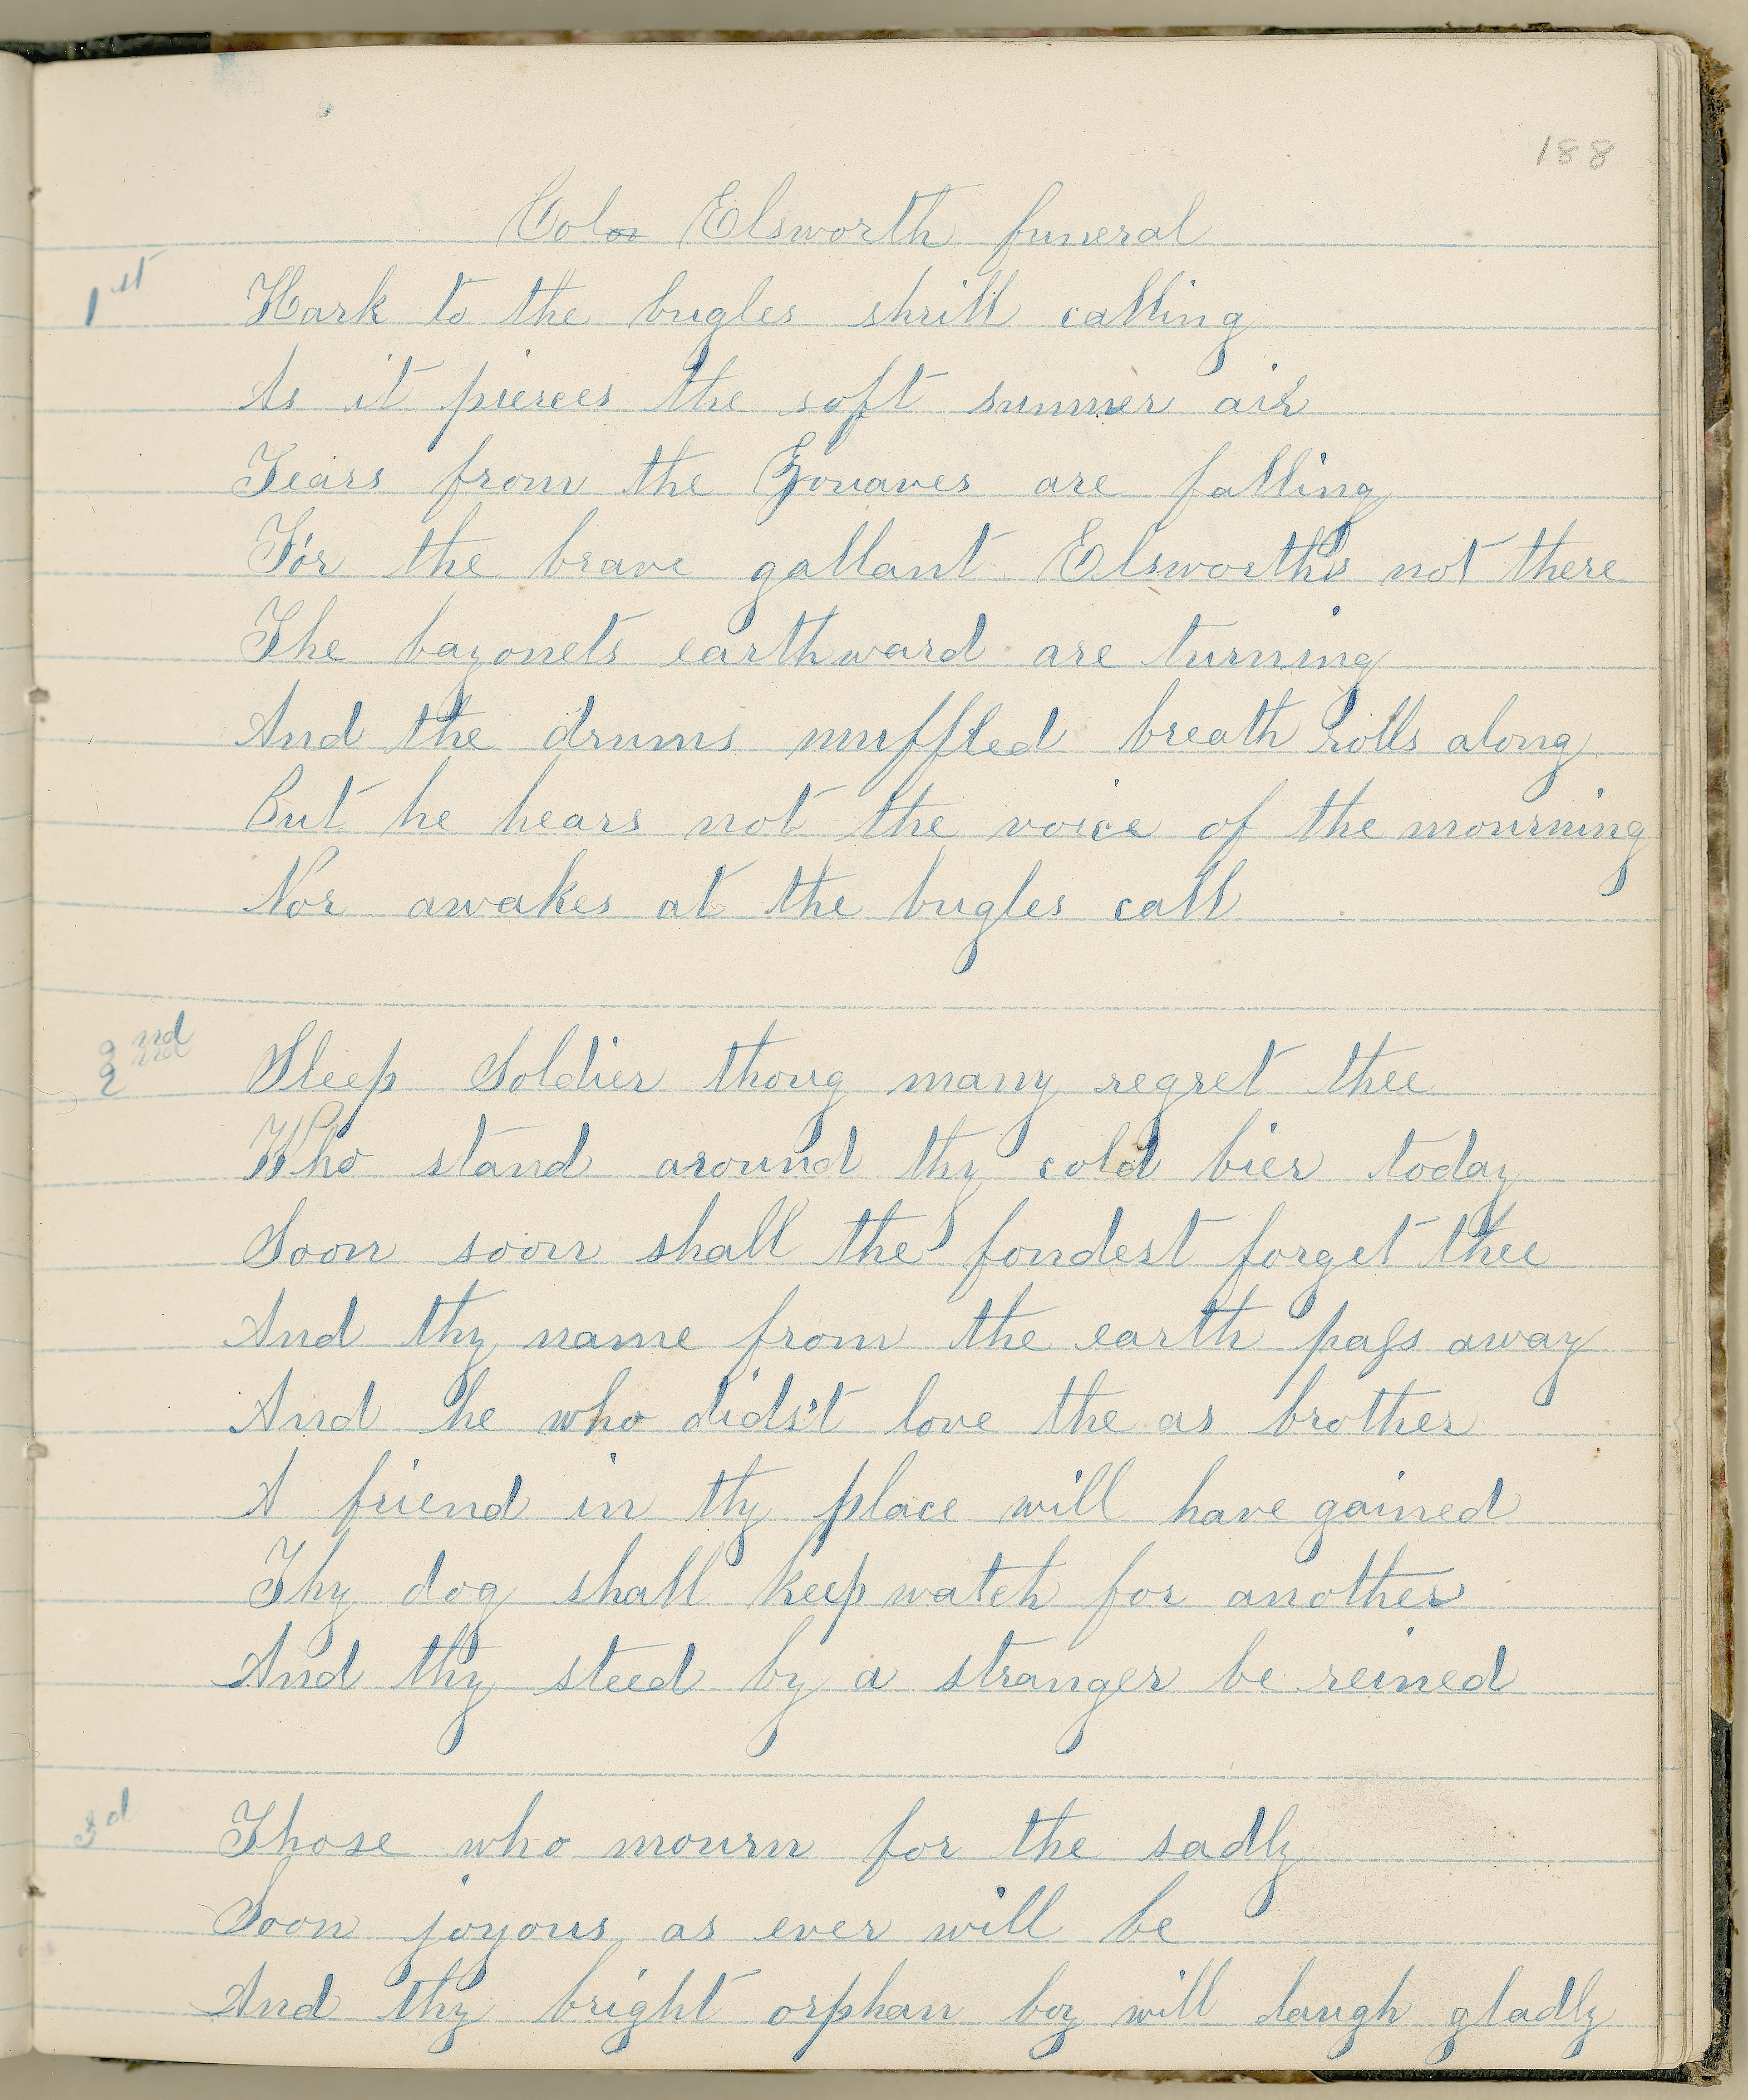 188
Col Elsworth funeral
1st Hark to the bugles shrill calling
As it pierces the soft summer air
Tears from the Zouaves are falling
For the brave gallant Elsworth's not there
The bayonets earthward are turning
And the drums muffled breath rolls along
But he hears not the voice of the mourning
Nor awakes at the bugles call
2nd Sleep Soldier thoug many regret thee
Who stand around thy cold bier today
Soon soon shall the fondest forget thee
And thy name from the earth pass away
And he who dids't love the as brother
A friend in thy place will have gained
Thy dog shall keep watch for another
And thy steed by a stranger be reined
3d Those who mourn for the sadly
Soon joyous as ever will be
And thy bright orphan boy will laugh gladly